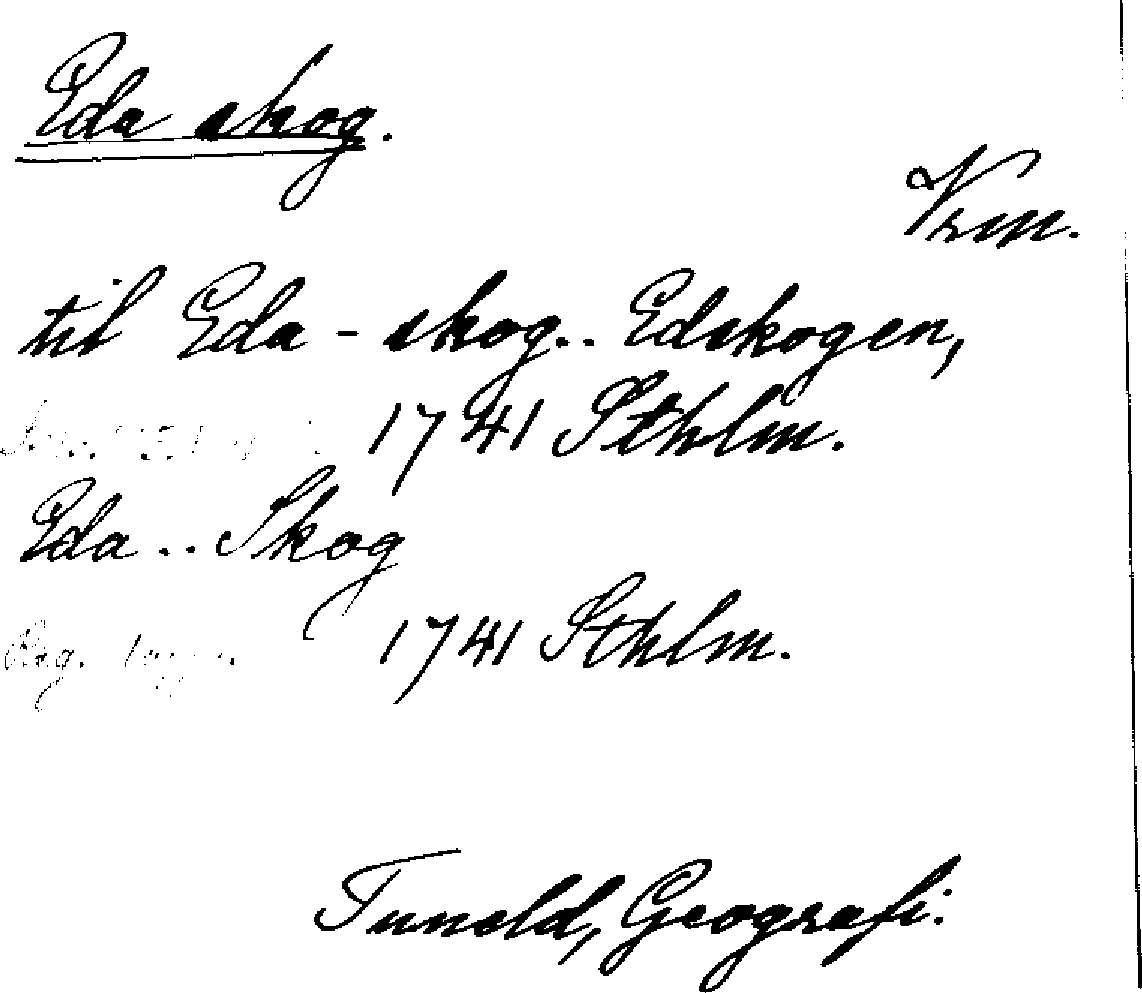 Eda skog.
Vrm.
til Eda - skog.. Edskogen,
1741 Sthlm.
Eda .. Skog
Reg. 1741 Sthlm.
Tuneld, Geografi.